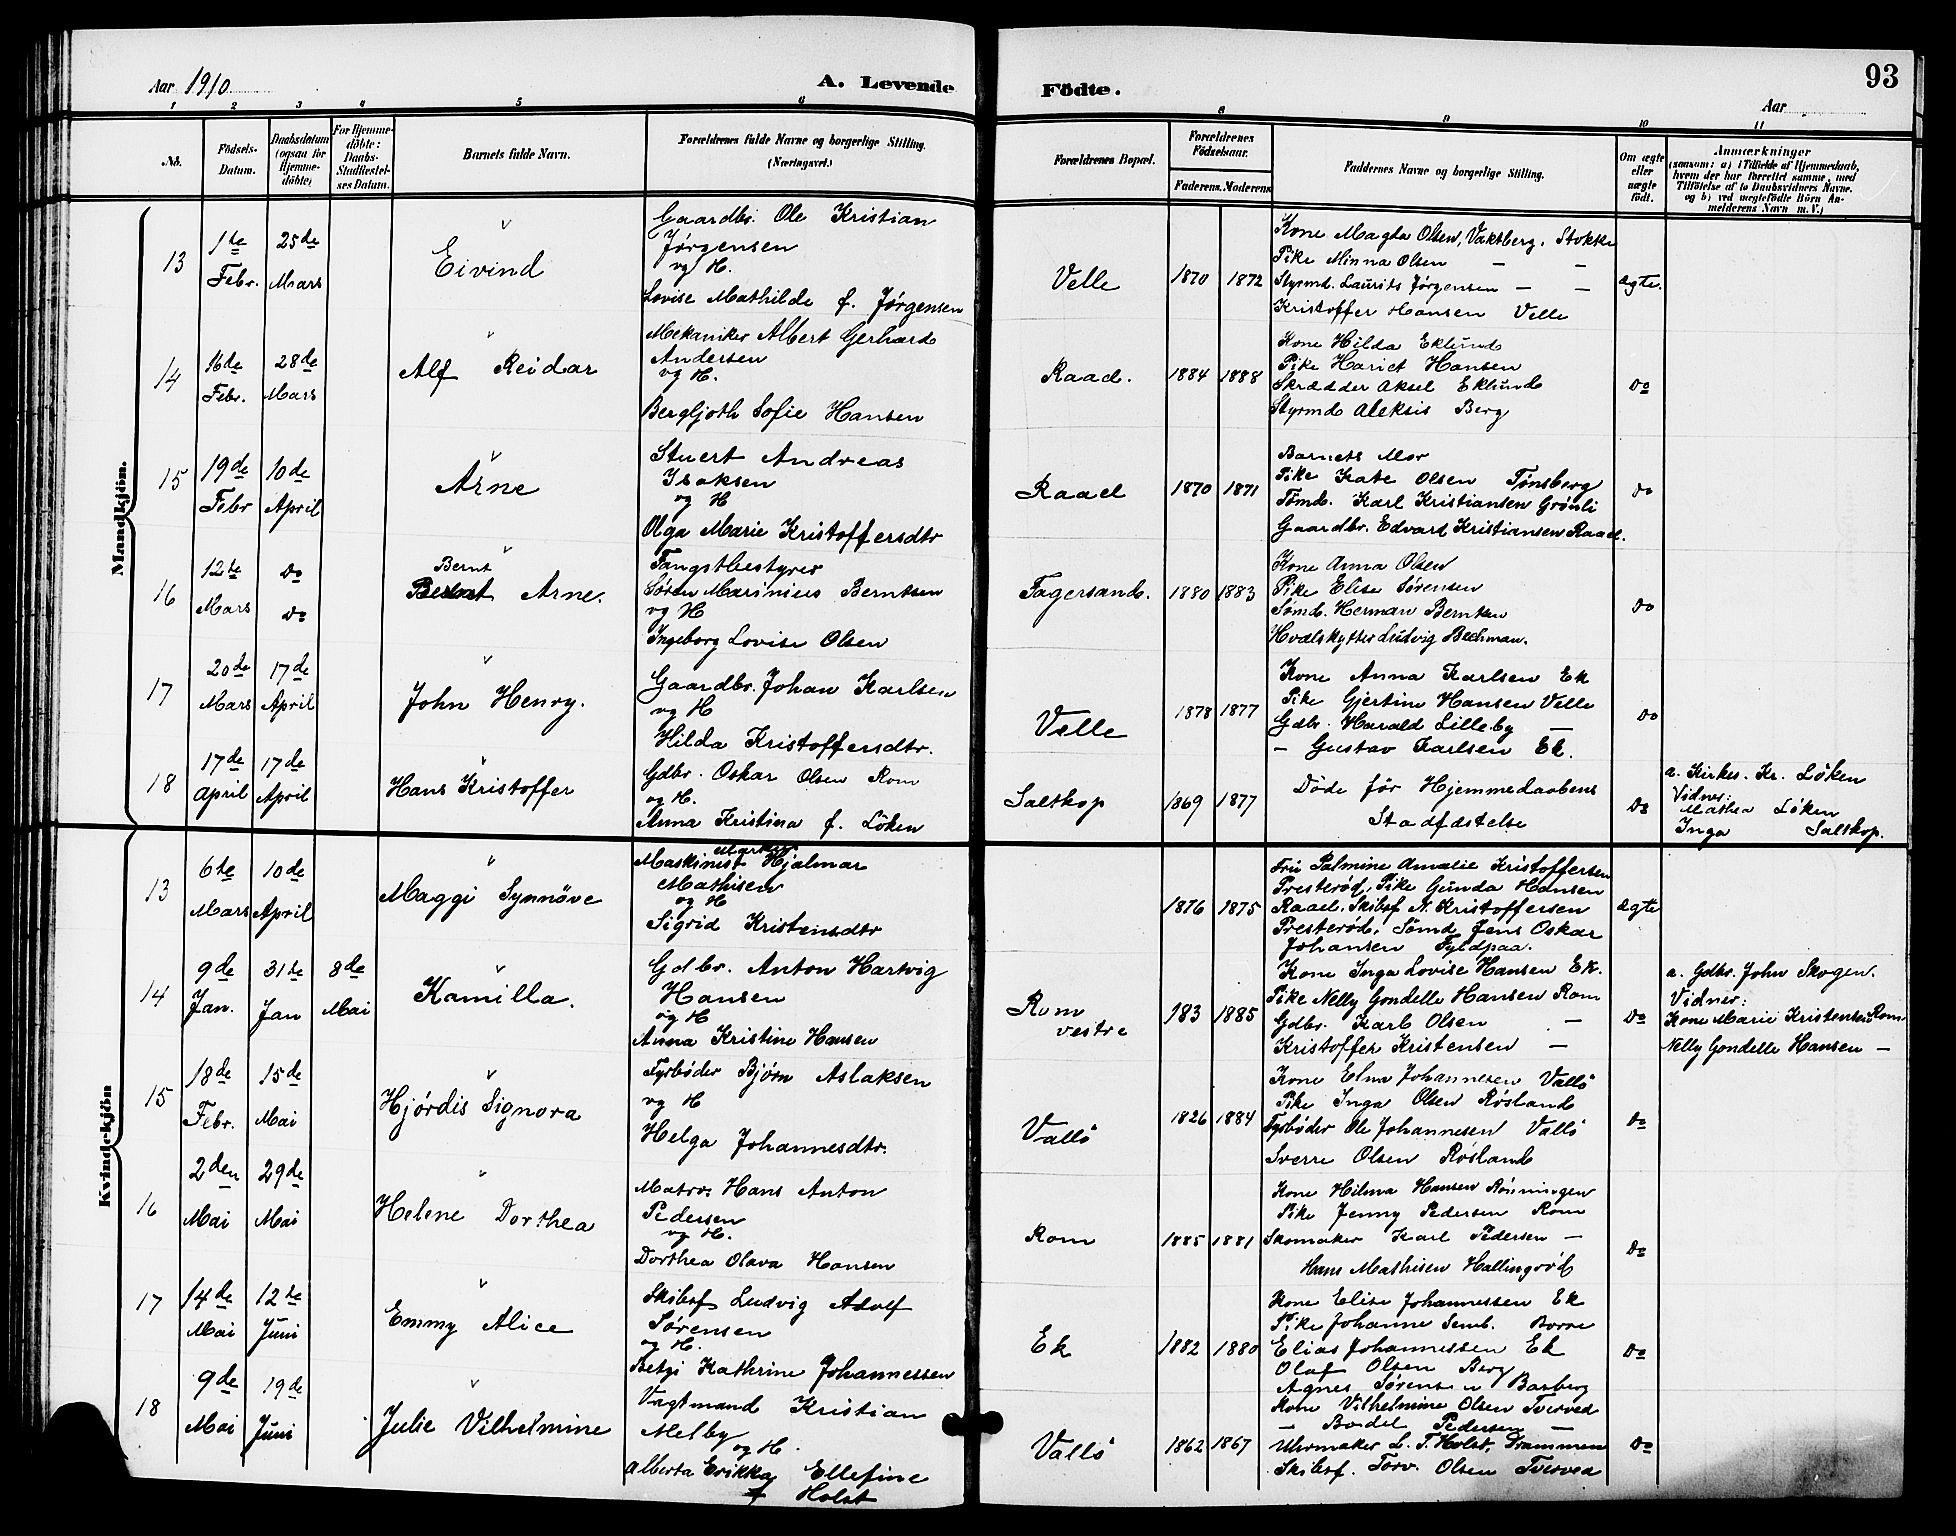 Aar 1910
A. Levende
Födte.
93
Aar
1 2 3 4 5 6 8 9 10 11
No.
Födsels-
Datum.
Daabsdatum
(ogsaa för
Hjemme-
döbte)
For Hjemme-
döbte:
Daabs-
Stadfæstel-
ses Datum.
Barnets fulde Navn.
Forældrenes fulde Navne og borgerlige Stilling.
(Næringsvei.)
Forældrenes Bopæl.
Forældrenes
Födselsaar.
Faderens. Moderens
Faddernes Navne og borgerlige Stilling.
Om ægte
eller
uægte
födt.
Anmærkninger
(saasom: a) i Tilfælde af Hjemmedaab,
hvem der har forrettet samme, med
Tilföielse af to Daabsvidners Navne.
og b) ved uegtefödte Börn An-
melderens Navn m. V.)
Mandkjön.
13
1te
Febr.
25de
Mars
Eivind
Gaardbr. Ole Kristian
Jørgensen
og H.
Lovise Mathilde f. Jørgensen
Velle
1870 1872
Kone Magda Olsen, Vaktberg. Stokke
Pike Minna Olsen — —
Styrmd. Laurits Jørgensen — —
Kristoffer Hansen Velle
ægte.
14
16de
Febr.
28de
Mars
Alf Reidar
Mekaniker Albert Gerhard
Andersen
og H.
Bergljoth Sofie Hansen
Raael.
1884 1888
Kone Hilda Eklund
Pike Hariet Hansen
Skrædder Aksel Eklund
Styrmd Aleksis Berg
Do
15
19de
Febr
10de
April
Arne
Stuert Andreas
Isaksen
og H
Olga Marie Kristoffersdtr
Raael
1870 1871
Barnets Mor
Pike Kate Olsen Tønsberg
Tømd. Karl Kristiansen Grönli
Gaardbr. Edvard Kristiansen Raael.
Do
16
12te
Mars
Do
Do
Bernt
Arne.
Fangstbestyrer
Søren Marinius Berntsen
og H
Ingeborg Lovise Olsen
Fagersand.
1880 1883
Kone Anna Olsen
Pike Elise Sørensen
Sømd. Herman Berntsen
Hvalskytter Ludvig Bechman.
Do
17
20de
Mars
17de
April
John Henry.
Gaardbr. Johan Karlsen
og H
Hilda Kristoffersdtr.
Velle
1878 1877
Kone Anna Karlsen Ek
Pike Gjertine Hansen Velle
Gdbr. Harald Lilleby —
— Gustav Karlsen Ek.
Do
18
17de
April
17de
April
Hans Kristoffer
Gdbr. Oskar Olsen Rom
og H.
Anna Kristina f. Löken
Saltkop
1869 1877
Döde för Hjemmedaabens
Stadfæstelse
Do
a. Kirkes. Kr. Löken
Vidner:
Mathea Löken
Inga Saltkop.
Kvindekjön
13
6te
Mars
10de
April
Maggi Synnöve
Maskinist Hjalmar
Mathisen
og H
Sigrid Kristensdtr
1876 1875
Fru Palmine Amalie Kristoffersen
Presterød, Pike Gunda Hansen
Raael. Skibsf N. Kristoffersen
Presterød, Sömd Jens Oskar
Johansen Fyldpaa.
ægte
14
9de
Jan.
31te
Jan
8de
Mai
Kamilla.
Gdbr. Anton Hartvig
Hansen
og H
Anna Kristine Hansen
Rom
vestre
183 1885
Kone Inga Lovise Hansen Ek.
Pike Nelly Gondelle Hansen Rom
Gdbr. Karl Olsen —
Kristoffer Kristensen —
Do
a. Gdbr. John Skogen.
Vidner:
Kone Marie Kristensen Rom
Nelly Gondelle Hansen —
15
18de
Febr.
15de
Mai
Hjórdis Signora
Fyrbøder Bjørn Aslaksen
og H
Helga Johannesdtr.
Vallö
1826 1884
Kone Elna Johannesen Vallö
Pike Inga Olsen Røsland
Fyrbøder Ole Johannesen Vallö
Sverre Olsen Røsland
Do
16
2den
Mai
29de
Mai
Helene Dorthea
Matro. Hans Anton
Pedersen
og H.
Dorthea Olava Hansen
Rom
1885 1881
Kone Hilma Hansen Rönningen
Pike Jenny Pedersen Rom
Skomaker Karl Pedersen —
Hans Mathisen Hallingrød
Do
17
14de
Mai
12te
Juni
Emmy Alice
Skibsf Ludvig Adolf
Sørensen
og H.
Betzi Kathrine Johannessen
Ek
1882 1880
Kone Elise Johannessen Ek
Pike Johanne Semb. Borre
Elias Johannessen Ek
Olaf Olsen Berg
Agnes Sørensen Basberg
Do
18
9de
Mai
19de
Juni
Julie Vilhelmine
Vagtmand Kristian
Melby
og H.
Alberta Erikka Ellefine
f Holst
Vallö
1862 1867
Kone Vilhelmine Olsen Tverved
— Bodel Pedersen —
Uhrmaker L. T. Holst, Drammen
Skibsf. Torv. Olsen Tverved
Do